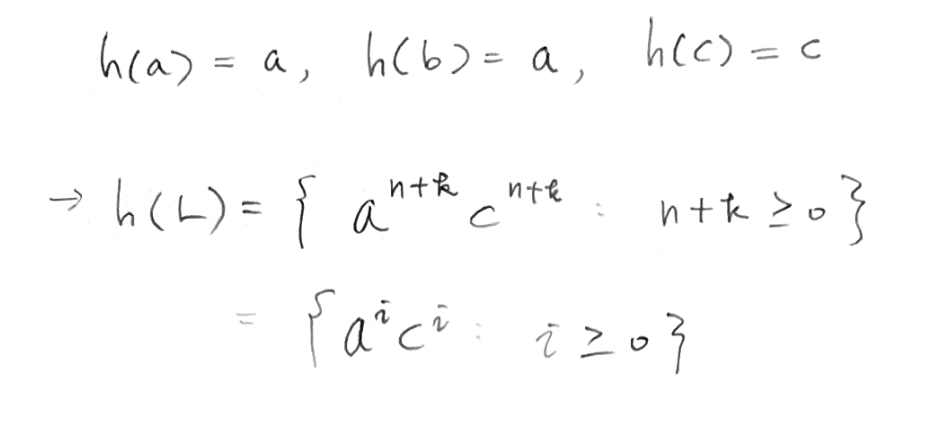 h(a) = a, h(b) = a, h(c) = c
→ h(L) = { a^{n+k} c^{n+k} : n+k ≥ 0 }
= { a^i c^i : i ≥ 0 }